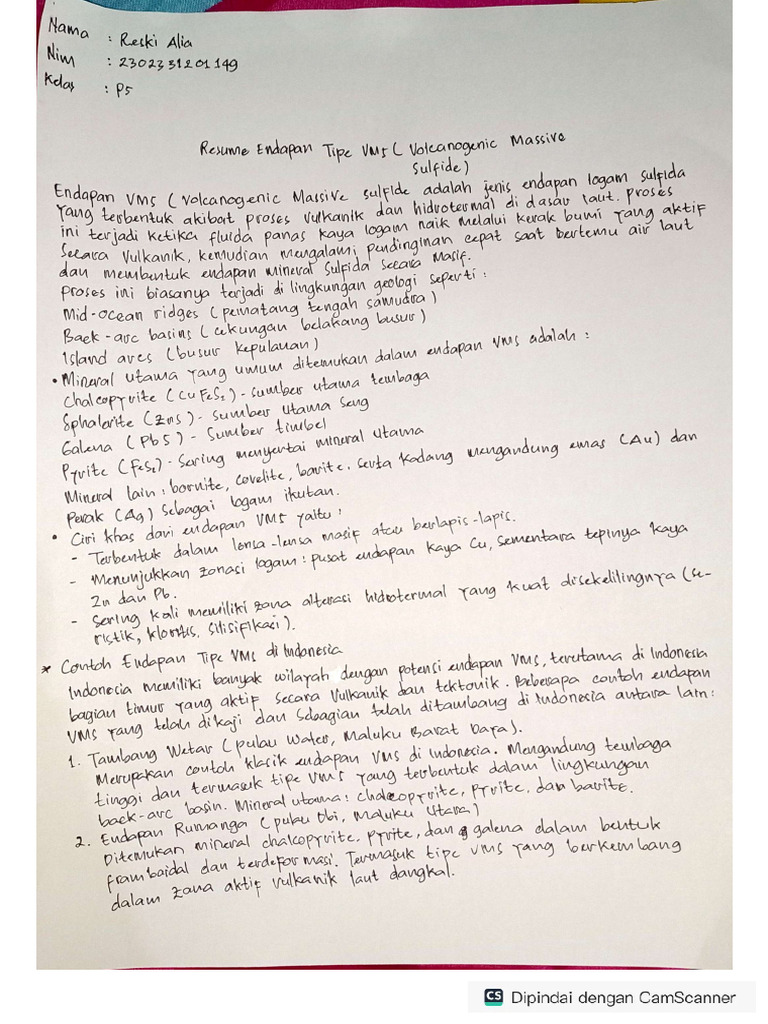 Nama : Reski Alia
Nim : 2302331201149
Kelas : P5
Resume Endapan Tipe VMS ( Volcanogenic Massive
Sulfide)
Endapan VMS ( Volcanogenic Massive sulfide adalah jenis endapan logam sulfida
yang terbentuk akibat proses vulkanik dan hidrotermal di dasar laut. proses
ini terjadi ketika fluida panas kaya logam naik melalui kerak bumi yang aktif
secara vulkanik, kemudian mengalami pendinginan cepat saat bertemu air laut
dan membentuk endapan mineral sulfida secara masif.
proses ini biasanya terjadi di lingkungan geologi seperti :
Mid-ocean ridges (pematang tengah samudra)
Back-arc basins (cekungan belakang busur)
Island arcs (busur kepulauan)
• Mineral utama yang umum ditemukan dalam endapan VMS adalah :
Chalcopyrite (CuFeS2) - sumber utama tembaga
Sphalerite (ZnS) - sumber utama Seng
Galena (PbS) - Sumber timbel
Pyrite (FeS2) - Sering menyertai mineral utama
Mineral lain : bornite, covelite, barite. Serta kadang mengandung emas (Au) dan
perak (Ag) sebagai logam ikutan.
• Ciri khas dari endapan VMS yaitu :
- Terbentuk dalam lensa-lensa masif atau berlapis-lapis.
- Menunjukkan zonasi logam : pusat endapan kaya Cu, sementara tepinya kaya
Zn dan Pb.
- Sering kali memiliki zona alterasi hidrotermal yang kuat disekelilingnya (se-
ristik, kloritis, silisifikasi).
* Contoh Endapan Tipe VMS di Indonesia
Indonesia memiliki banyak wilayah dengan potensi endapan VMS, terutama di Indonesia
bagian timur yang aktif secara vulkanik dan tektonik. Beberapa contoh endapan
VMS yang telah dikaji dan sebagian telah ditambang di Indonesia antara lain :
1. Tambang Wetar (pulau Water, Maluku Barat Daya).
Merupakan contoh klasik endapan VMS di Indonesia. Mengandung tembaga
tinggi dan termasuk tipe VMS yang terbentuk dalam lingkungan
back-arc basin. Mineral utama : chalcopyrite, pyrite, dan barite.
2. Endapan Rumanga (pulau Obi, Maluku Utara)
Ditemukan mineral chalcopyrite, pyrite, dan galena dalam bentuk
frambaidal dan terdeformasi. Termasuk tipe VMS yang berkembang
dalam zona aktif vulkanik laut dangkal.
CS Dipindai dengan CamScanner